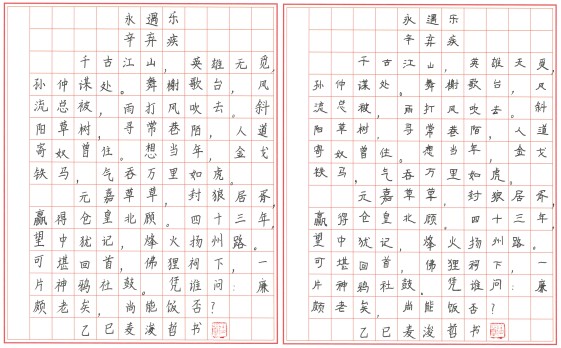 永遇乐
辛弃疾
千古江山，英雄无觅，
孙仲谋处。舞榭歌台，风
流总被，雨打风吹去。斜
阳草树，寻常巷陌，人道
寄奴曾住。想当年，金戈
铁马，气吞万里如虎。
元嘉草草，封狼居胥，
赢得仓皇北顾。四十三年，
望中犹记，烽火扬州路。
可堪回首，佛狸祠下，一
片神鸦社鼓。凭谁问：廉
颇老矣，尚能饭否？
乙巳麦浚哲书
永遇乐
辛弃疾
千古江山，英雄无觅，
孙仲谋处。舞榭歌台，风
流总被，雨打风吹去。斜
阳草树，寻常巷陌，人道
寄奴曾住。想当年，金戈
铁马，气吞万里如虎。
元嘉草草，封狼居胥，
赢得仓皇北顾。四十三年，
望中犹记，烽火扬州路。
可堪回首，佛狸祠下，一
片神鸦社鼓。凭谁问：廉
颇老矣，尚能饭否？
乙巳麦浚哲书